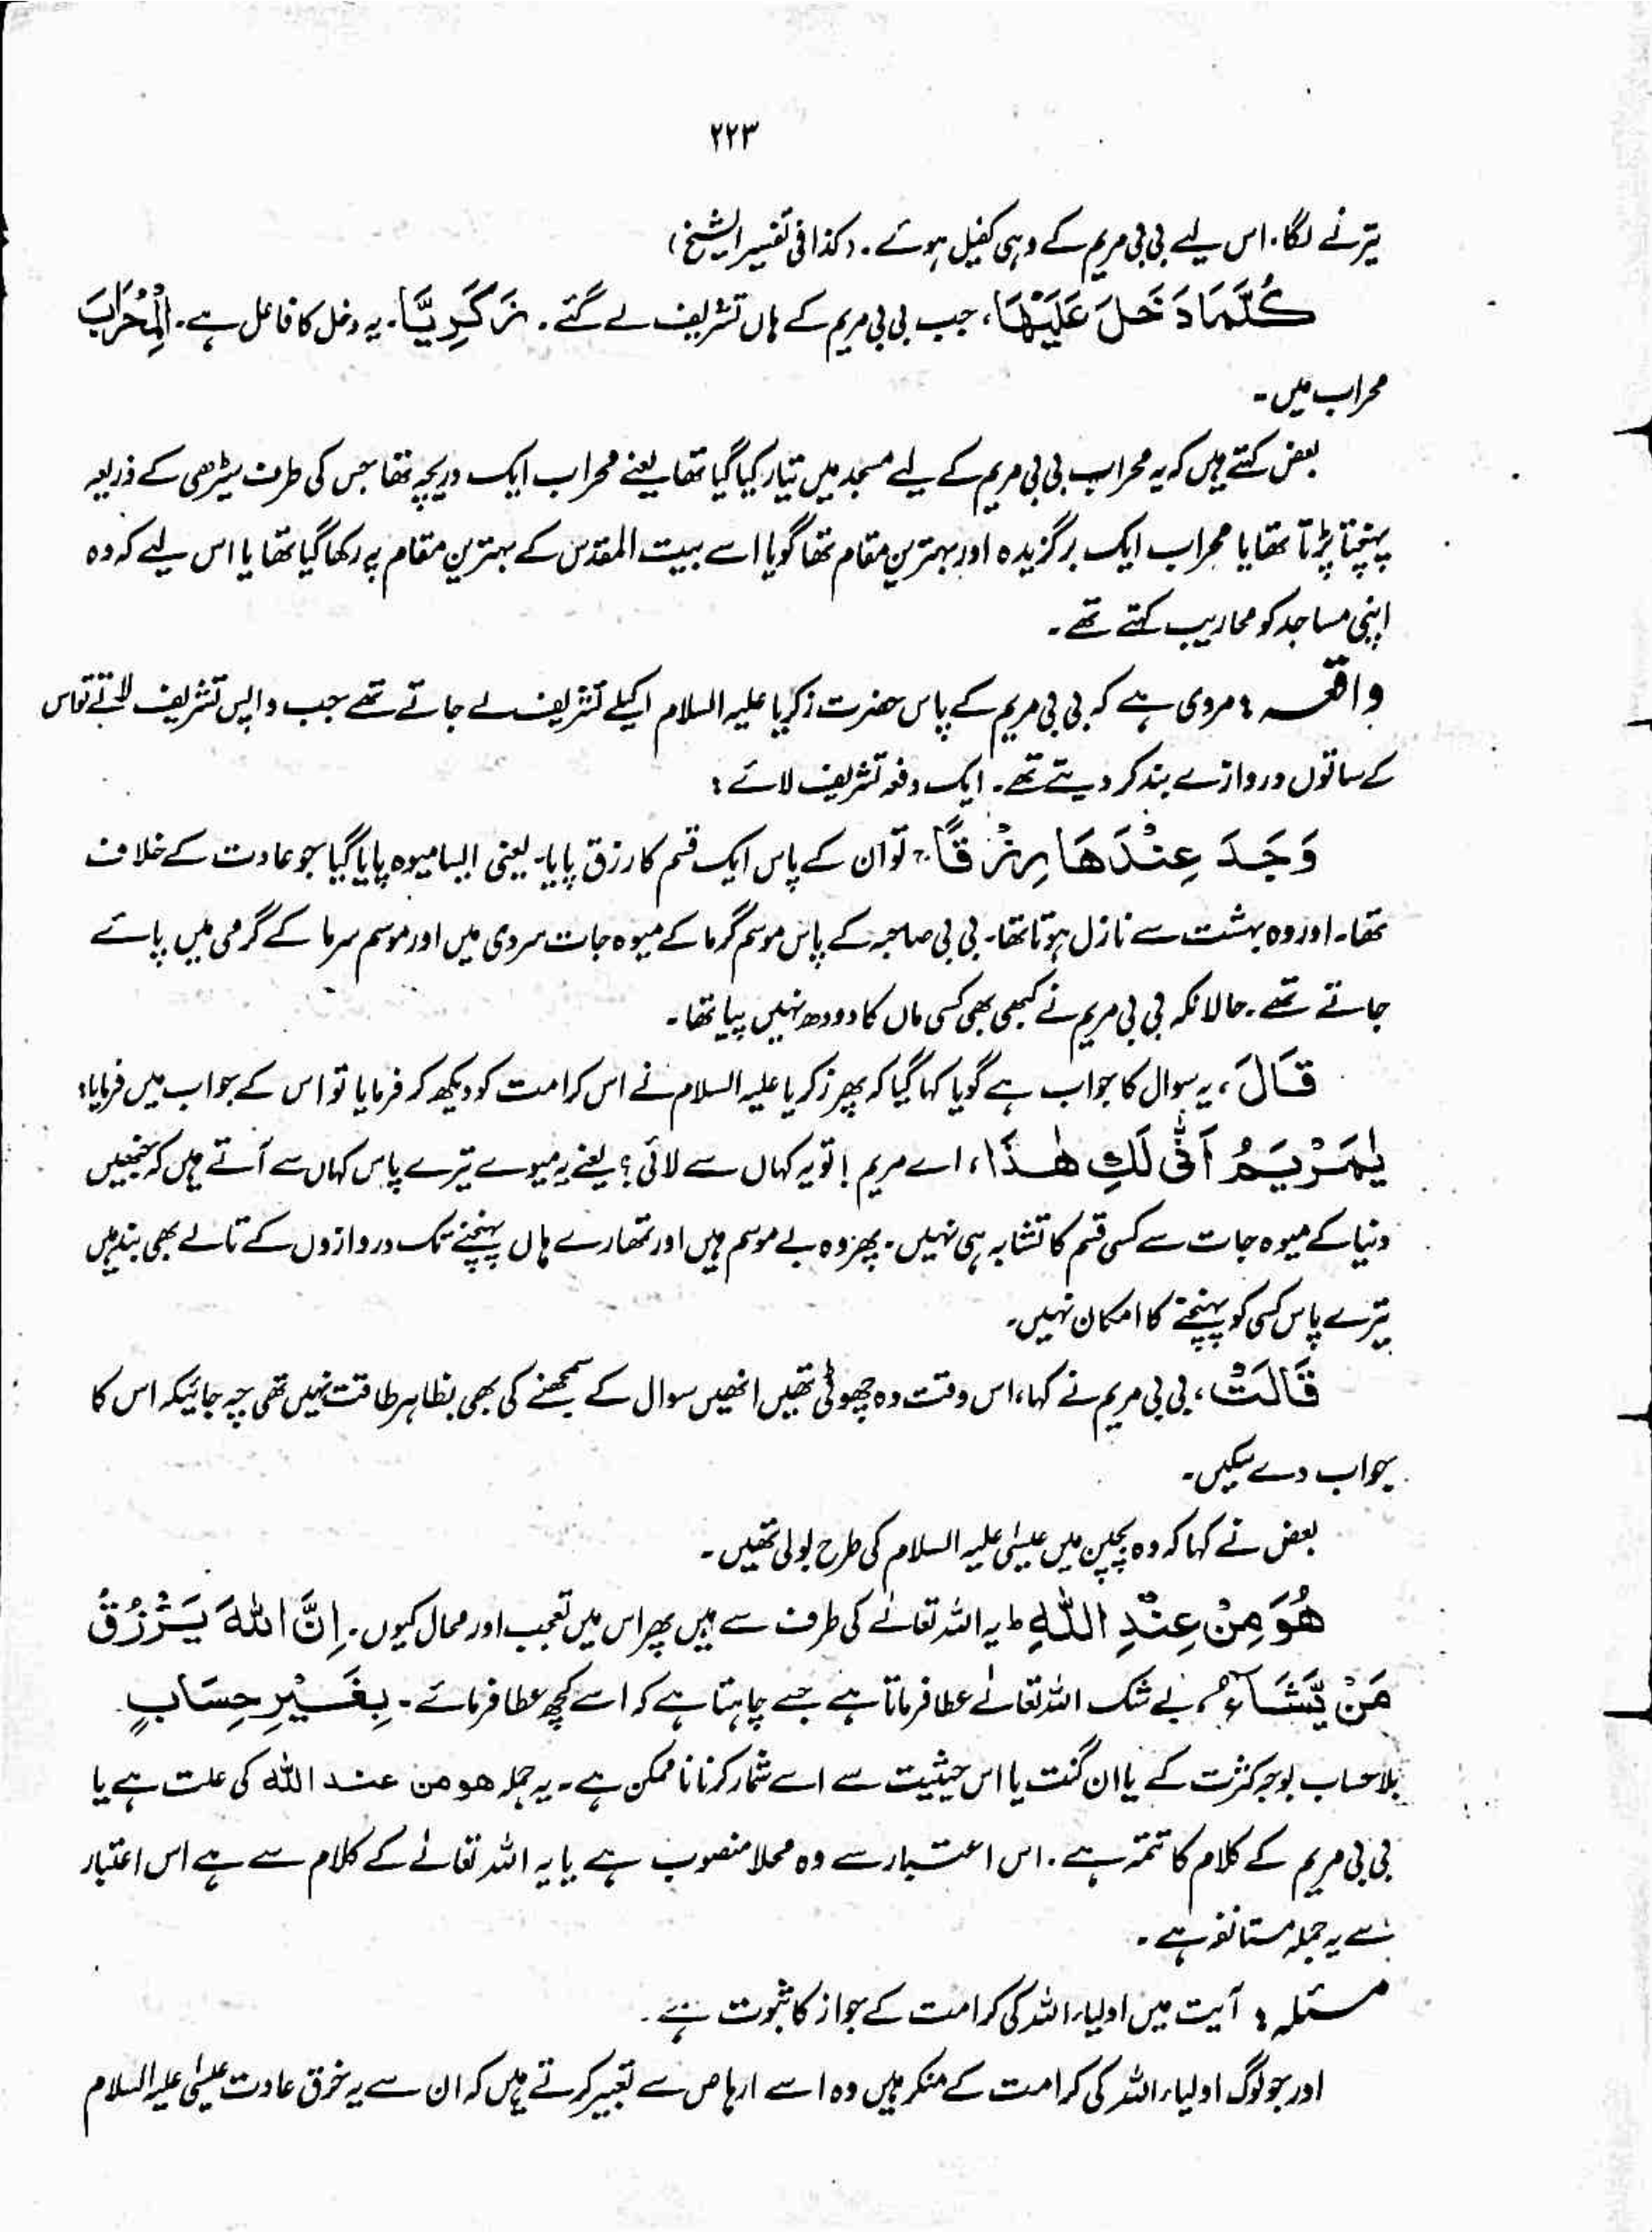 ۲۲۳
تیرنے لگا۔ اس لیے بی بی مریم کے وہی کفیل ہوئے۔ (کذا فی تفسیر الشیخ)
كُلَّمَا دَخَلَ عَلَيْهَا، جب بی بی مریم کے ہاں تشریف لے گئے۔ زَكَرِيَّا۔ یہ دخل کا فاعل ہے۔ الْمِحْرَابَ
محراب میں۔
بعض کہتے ہیں کہ یہ محراب بی بی مریم کے لیے مسجد میں تیار کیا گیا تھا یعنے محراب ایک دریچہ تھا جس کی طرف سیڑھی کے ذریعہ
پہنچنا پڑتا تھا یا محراب ایک برگزیدہ اور بہترین مقام تھا گویا اسے بیت المقدس کے بہترین مقام پہ رکھا گیا تھا یا اس لیے کہ وہ
اپنی مساجد کو محاریب کہتے تھے۔
واقعہ : مروی ہے کہ بی بی مریم کے پاس حضرت زکریا علیہ السلام اکیلے تشریف لے جاتے تھے جب واپس تشریف لاتے تو اس
کے ساتوں دروازے بند کر دیتے تھے۔ ایک دفعہ تشریف لائے :
وَجَدَ عِنْدَهَا رِزْقًا ۚ تو ان کے پاس ایک قسم کا رزق پایا۔ یعنی ایسا میوہ پایا گیا جو عادت کے خلاف
تھا۔ اور وہ بہشت سے نازل ہوتا تھا۔ بی بی صاحبہ کے پاس موسم گرما کے میوہ جات سردی میں اور موسم سرما کے گرمی میں پائے
جاتے تھے۔ حالانکہ بی بی مریم نے کبھی بھی کسی ماں کا دودھ نہیں پیا تھا۔
قَالَ، یہ سوال کا جواب ہے گویا کہا گیا کہ پھر زکریا علیہ السلام نے اس کرامت کو دیکھ کر فرمایا تو اس کے جواب میں فرمایا :
يٰمَرْيَمُ اَنّٰى لَكِ هٰذَا، اے مریم ! تو یہ کہاں سے لائی ؟ یعنے یہ میوے تیرے پاس کہاں سے آتے ہیں کہ جنھیں
دنیا کے میوہ جات سے کسی قسم کا تشابہ ہی نہیں۔ پھر وہ بے موسم ہیں اور تمھارے ہاں پہنچنے تک دروازوں کے تالے بھی بند ہیں
تیرے پاس کسی کو پہنچنے کا امکان نہیں۔
قَالَتْ، بی بی مریم نے کہا، اس وقت وہ چھوٹی تھیں انھیں سوال کے سمجھنے کی بھی بظاہر طاقت نہیں تھی چہ جائیکہ اس کا
جواب دے سکیں۔
بعض نے کہا کہ وہ بچپن میں عیسٰی علیہ السلام کی طرح بولی تھیں۔
هُوَ مِنْ عِنْدِ اللّٰهِ ط یہ اللہ تعالٰے کی طرف سے ہیں پھر اس میں تعجب اور محال کیوں۔ اِنَّ اللّٰهَ يَرْزُقُ
مَنْ يَّشَآءُ، بے شک اللہ تعالٰے عطا فرماتا ہے جسے چاہتا ہے کہ اسے کچھ عطا فرمائے۔ بِغَيْرِ حِسَابٍ
بلا حساب بوجہ کثرت کے یا ان گنت یا اس حیثیت سے اسے شمار کرنا ناممکن ہے۔ یہ جملہ ھو من عند اللہ کی علت ہے یا
بی بی مریم کے کلام کا تتمہ ہے۔ اس اعتبار سے وہ محلا منصوب ہے یا یہ اللہ تعالٰے کے کلام سے ہے اس اعتبار
سے یہ جملہ مستانفہ ہے۔
مسئلہ : آیت میں اولیاء اللہ کی کرامت کے جواز کا ثبوت ہے۔
اور جو لوگ اولیاء اللہ کی کرامت کے منکر ہیں وہ اسے ارہاص سے تعبیر کرتے ہیں کہ ان سے یہ خرق عادت عیسٰی علیہ السلام